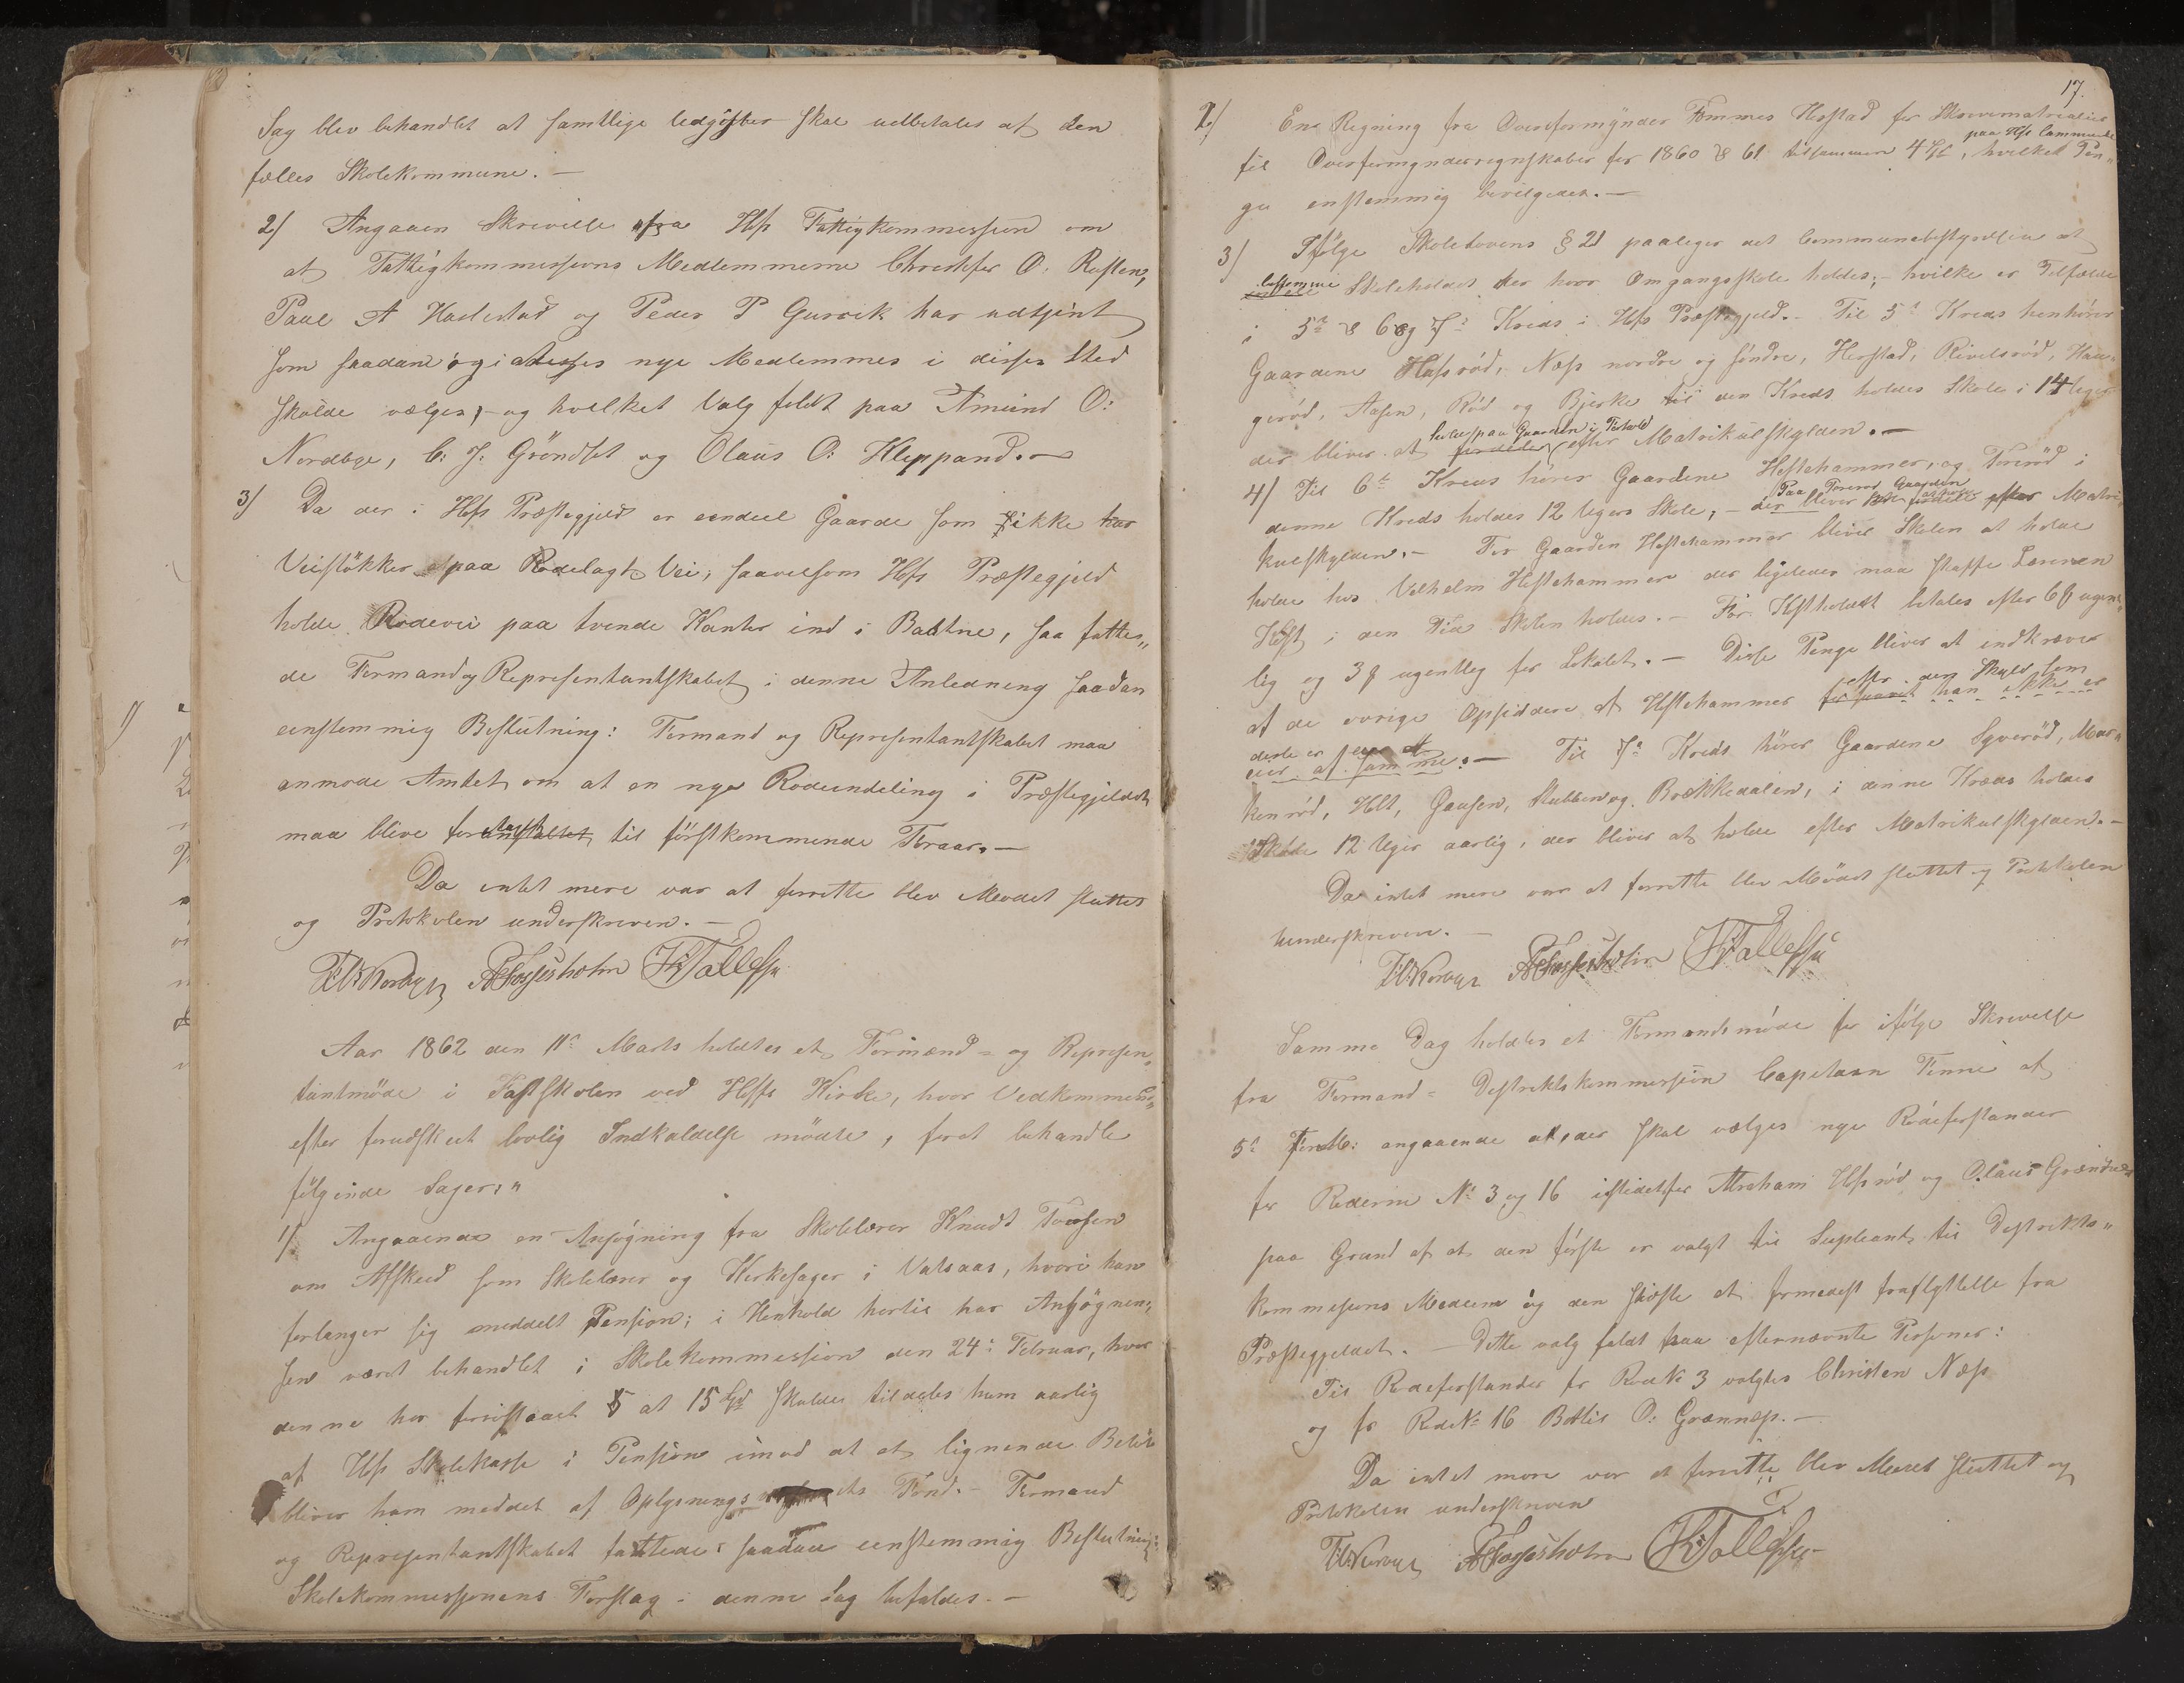 Sag blev behandlet at samtlige udgifter skal udbetales af den
fælles Skolekommune. —
2/ Angaaen Skrivelse fra Hofs Fattigkommission om
at Fattigkommissions Medlemmerne Christofer O: Røslen,
Paul A Haslestad og Peder P Gurvik har udtjent
som saadan og i nye Medlemmer i disses Sted
skulde vælges, - og hvilket Valg feldt paa Amund O:
Nordbye, C: J: Gröndset og Olaus O: Kleppand. —
3/ Da der i Hofs Præstegjeld er eendeel Gaarde som ikke har
Veistökker paa Rodelagt Vei, saavelsom Hofs Præstegjeld
holde Rodevei paa tvende Kanter ind i Botne, saa fatte„
de Formand og Representantskabet i denne Anledning saadan
eenstemmig Beslutning: Formand og Representantskabet maa
anmode Amtet om at en nye Rodeinddeling i Præstegjeldet
maa blive foranstaltet til förstkommende Foraar. —
Da intet mere var at forrette blev Mødet sluttet
og Protokolen underskreven. —
Aar 1862 den 11te Marts holdtes et Formænd = og Represen„
tantmöde i Fastskolen ved Hofs Kirke, hvor Vedkommend„
efter forudskeet lovlig Indkaldelse mödte, forat behandle
fölgende Sager: "
1/ Angaaende en Ansögning fra Skolelærer Knudt
om Afsked som Skolelærer og Kirkesager i Valsaas, hvori han
forlanger sig meddelt Pension; i Henhold hertil har Ansögnin„
gen været behandlet i Skolekommission den 24: Februar, hvor
denne har foreslaaet at 15 Spd skulde tildeles ham aarlig
af Hofs Skolekasse i Pension imod at et lignende Belöb
bliver ham meddet af Oplysnings Fond. - Formand
og Representantskabet fattede saadan eenstemmig Beslutning:
Skolekommissionens Forslag i denne Sag bifaldes. —
17.
2/ Ene Regning fra Overformynder Hofstad for Skrivematrialier
paa Hofs Commune
til Overformynderregnskaber for 1860 & 61 tilsammen 4 Spd, hvilket Pen„
ge enstemmig bevilgedes. —
3/ Ifölge Skolelovens § 21 paalegger det Communebestyrelsen at
bestemme Skoleholdet der hvor Omgangsskole holdes; - hvilke er Tilfælde
i 5te & 6 og 7de Kreds i Hofs Præstegjeld. - Til 5te Kreds henhörer
Gaardene Hofsröd, Næss nordre og söndre, Herstad, Rivelsröd, Hau„
geröd, Aasen, Röd og Bjerke til den Kreds holdes Skole i 14 Uger
holdes paa Gaarden i Forhold
der bliver at fordeles efter Matrikulskylden. —
4/ Til 6te Kreds hörer Gaardene Hestehammer, og Toreröd i
Paa Toreröd Gaarden
denne Kreds holdes 12 Ugers Skole; - der bliver efter Matri„
kulskylden. - For Gaarden Hestehammer bliver Skolen at holde
holde hos Vilhelm Hestehammer der ligeledes maa skaffe Læreren
Kost i den Tid Skolen holdes. - For Kostholdet betales efter 60 ugent„
lig og 3 ß ugentlig for Lokalet. - Disse Penge bliver at indkræves
efter den Skyld som
af de övrige Opsiddere af Hestehammer han ikke er
eier af samme. — Til 7de Kreds hörer Gaardene Syveröd, Mar„
kenröd, Holt, Gausen, Stubben og Brækkedalen, i denne Kreds holdes
Skole 12 Uger aarlig, der bliver at holde efter Matrikulskylden. -
Da intet mere var at forrette blev Mödet sluttet og Protokolen
underskreven. —
Samme Dag holdtes et Formandsmöde for ifölge Skrivelse
fra Formand = Destriktskommission Capitaan Finne af
5te angaaende at, der skal vælges nye Rodeforstander
for Roderne No 3 og 16 istedetfor Abraham Hofsröd og Olaus
paa Grund af at den förste er valgt til Supleant til Destrikts„
kommissions Medlem og den sidste at formedelst fraflyttelse fra
Præstegjeldet. - Dette valg feldt paa efternævnte Personer:
Til Rodeforstander for Rode No 3 valgtes Christen Næss
og for Rode No 16 O: Grænnæss. -
Da intet mere var at forrette blev Mødet sluttet og
Protokolen underskreven